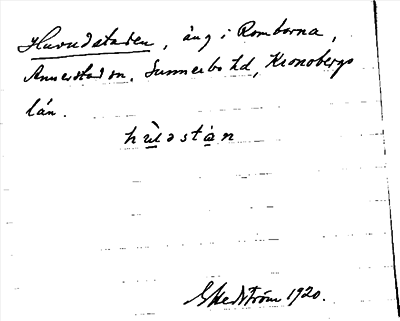 Huvudstaden, äng i Romborna,
Annerstad sn, Sunnerbo hd, Kronobergs
län.
hùədstán
G Hedström 1920.